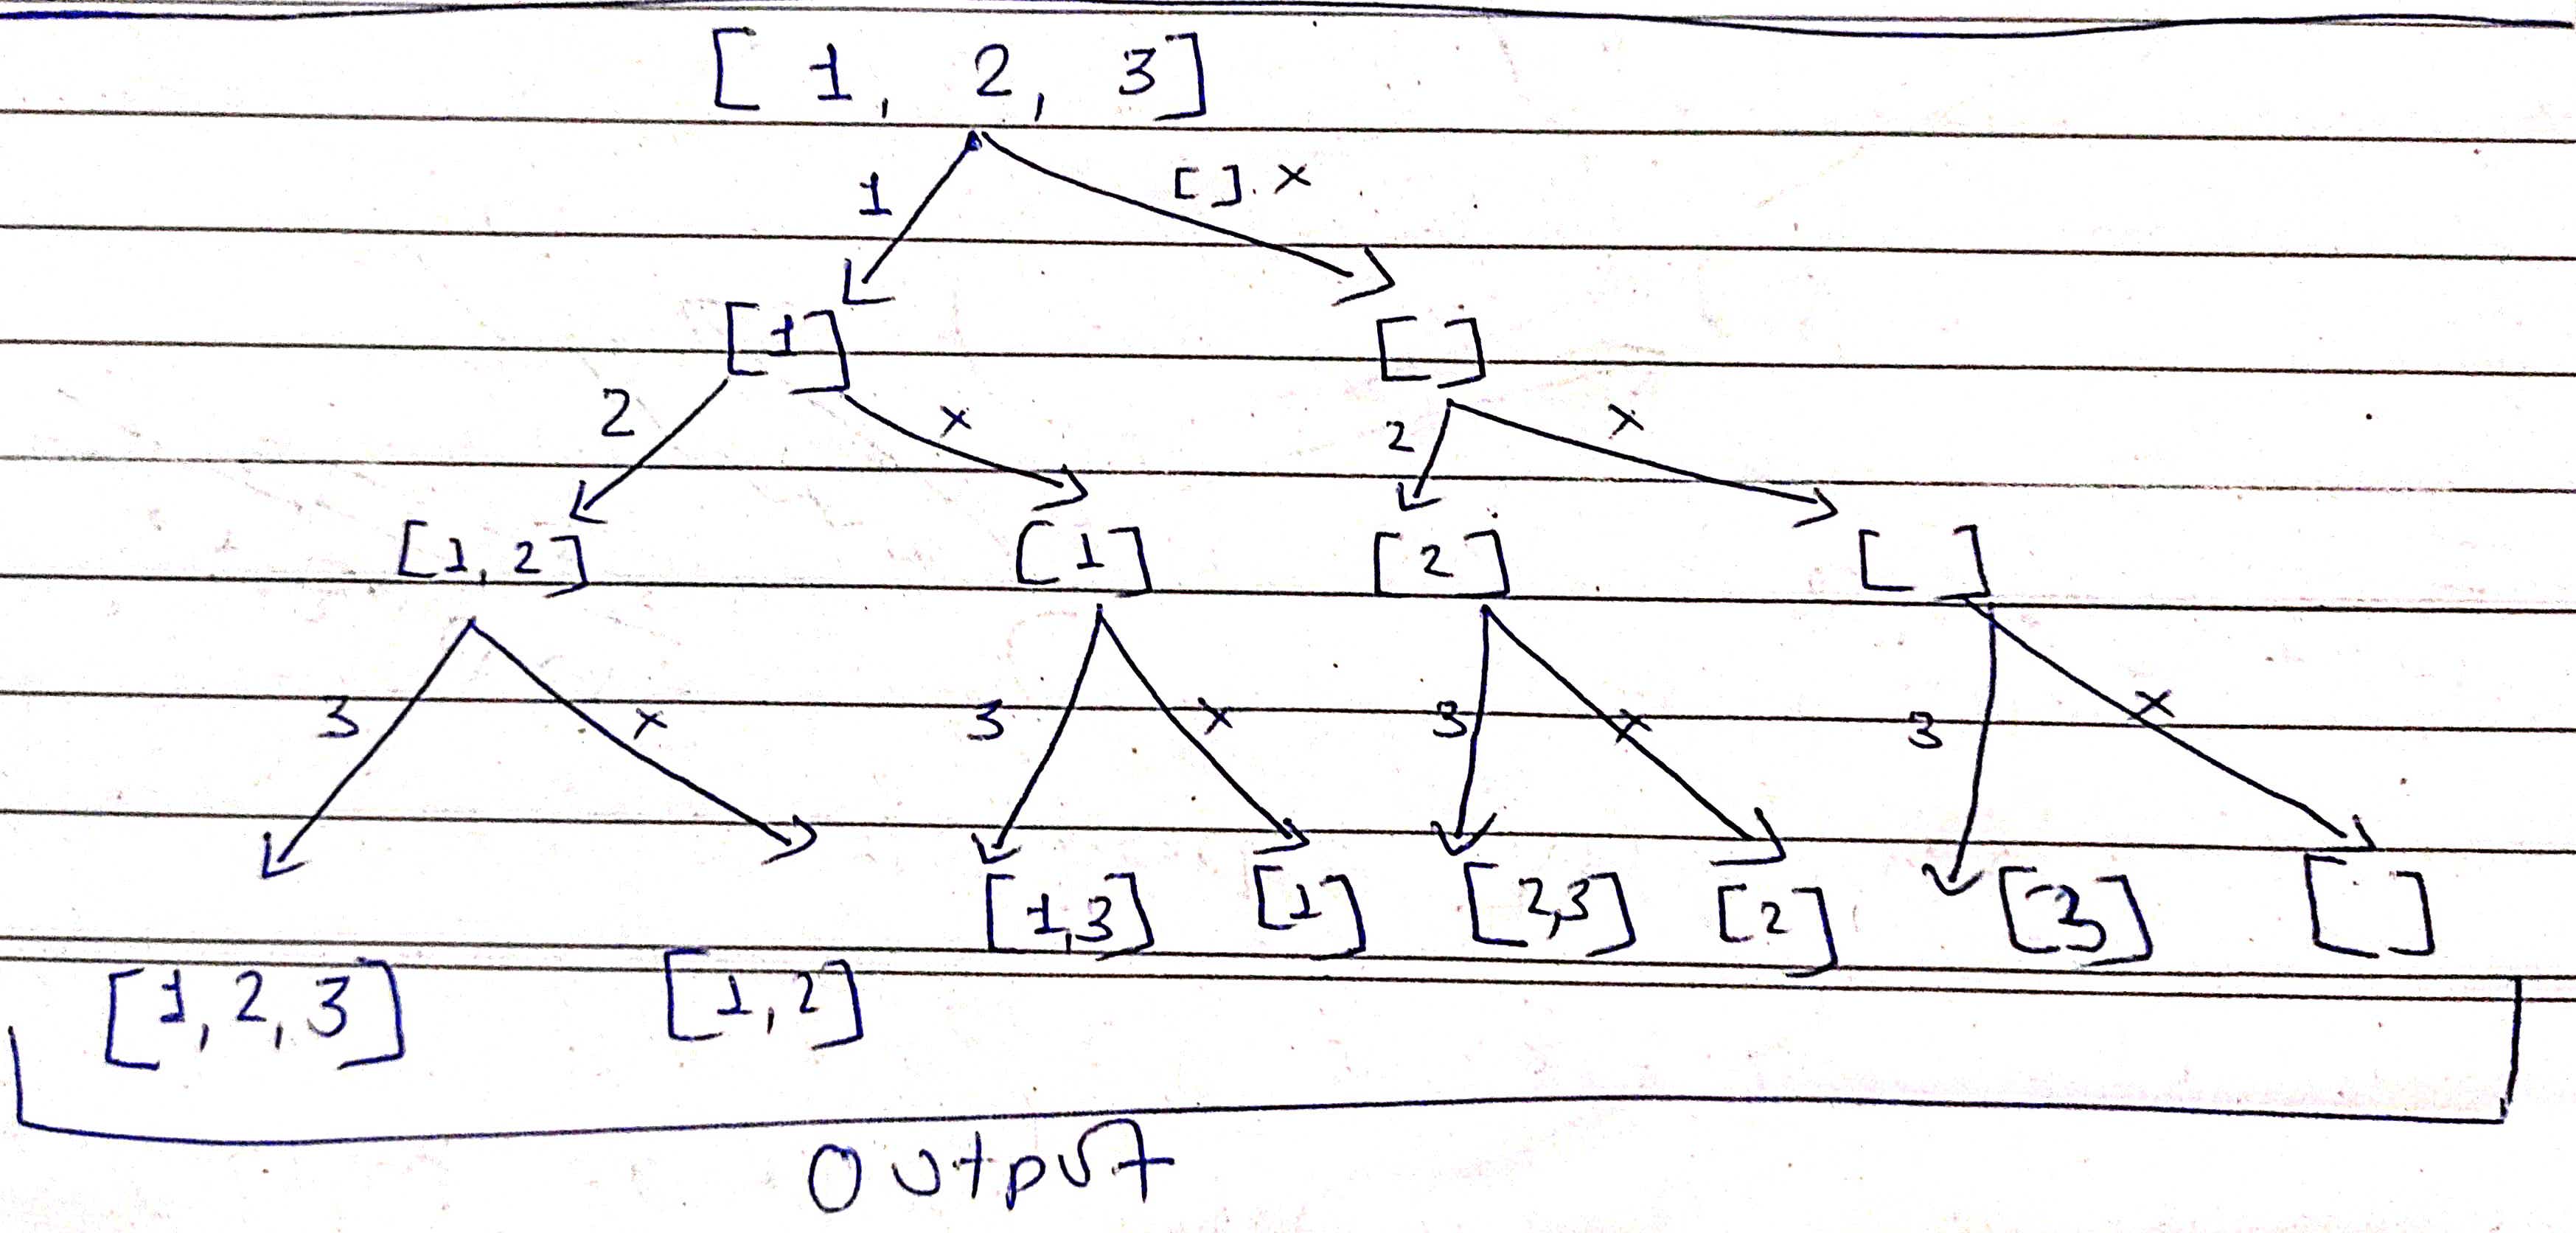 [ 1, 2, 3 ]
1 [ ]. x
[ 1 ] [ ]
2 x 2 x
[ 1, 2 ] [ 1 ] [ 2 ] [ ]
3 x 3 x 3 x 3 x
[ 1,3 ] [ 1 ] [ 2,3 ] [ 2 ] [ 3 ] [ ]
[ 1, 2, 3 ] [ 1, 2 ]
Output